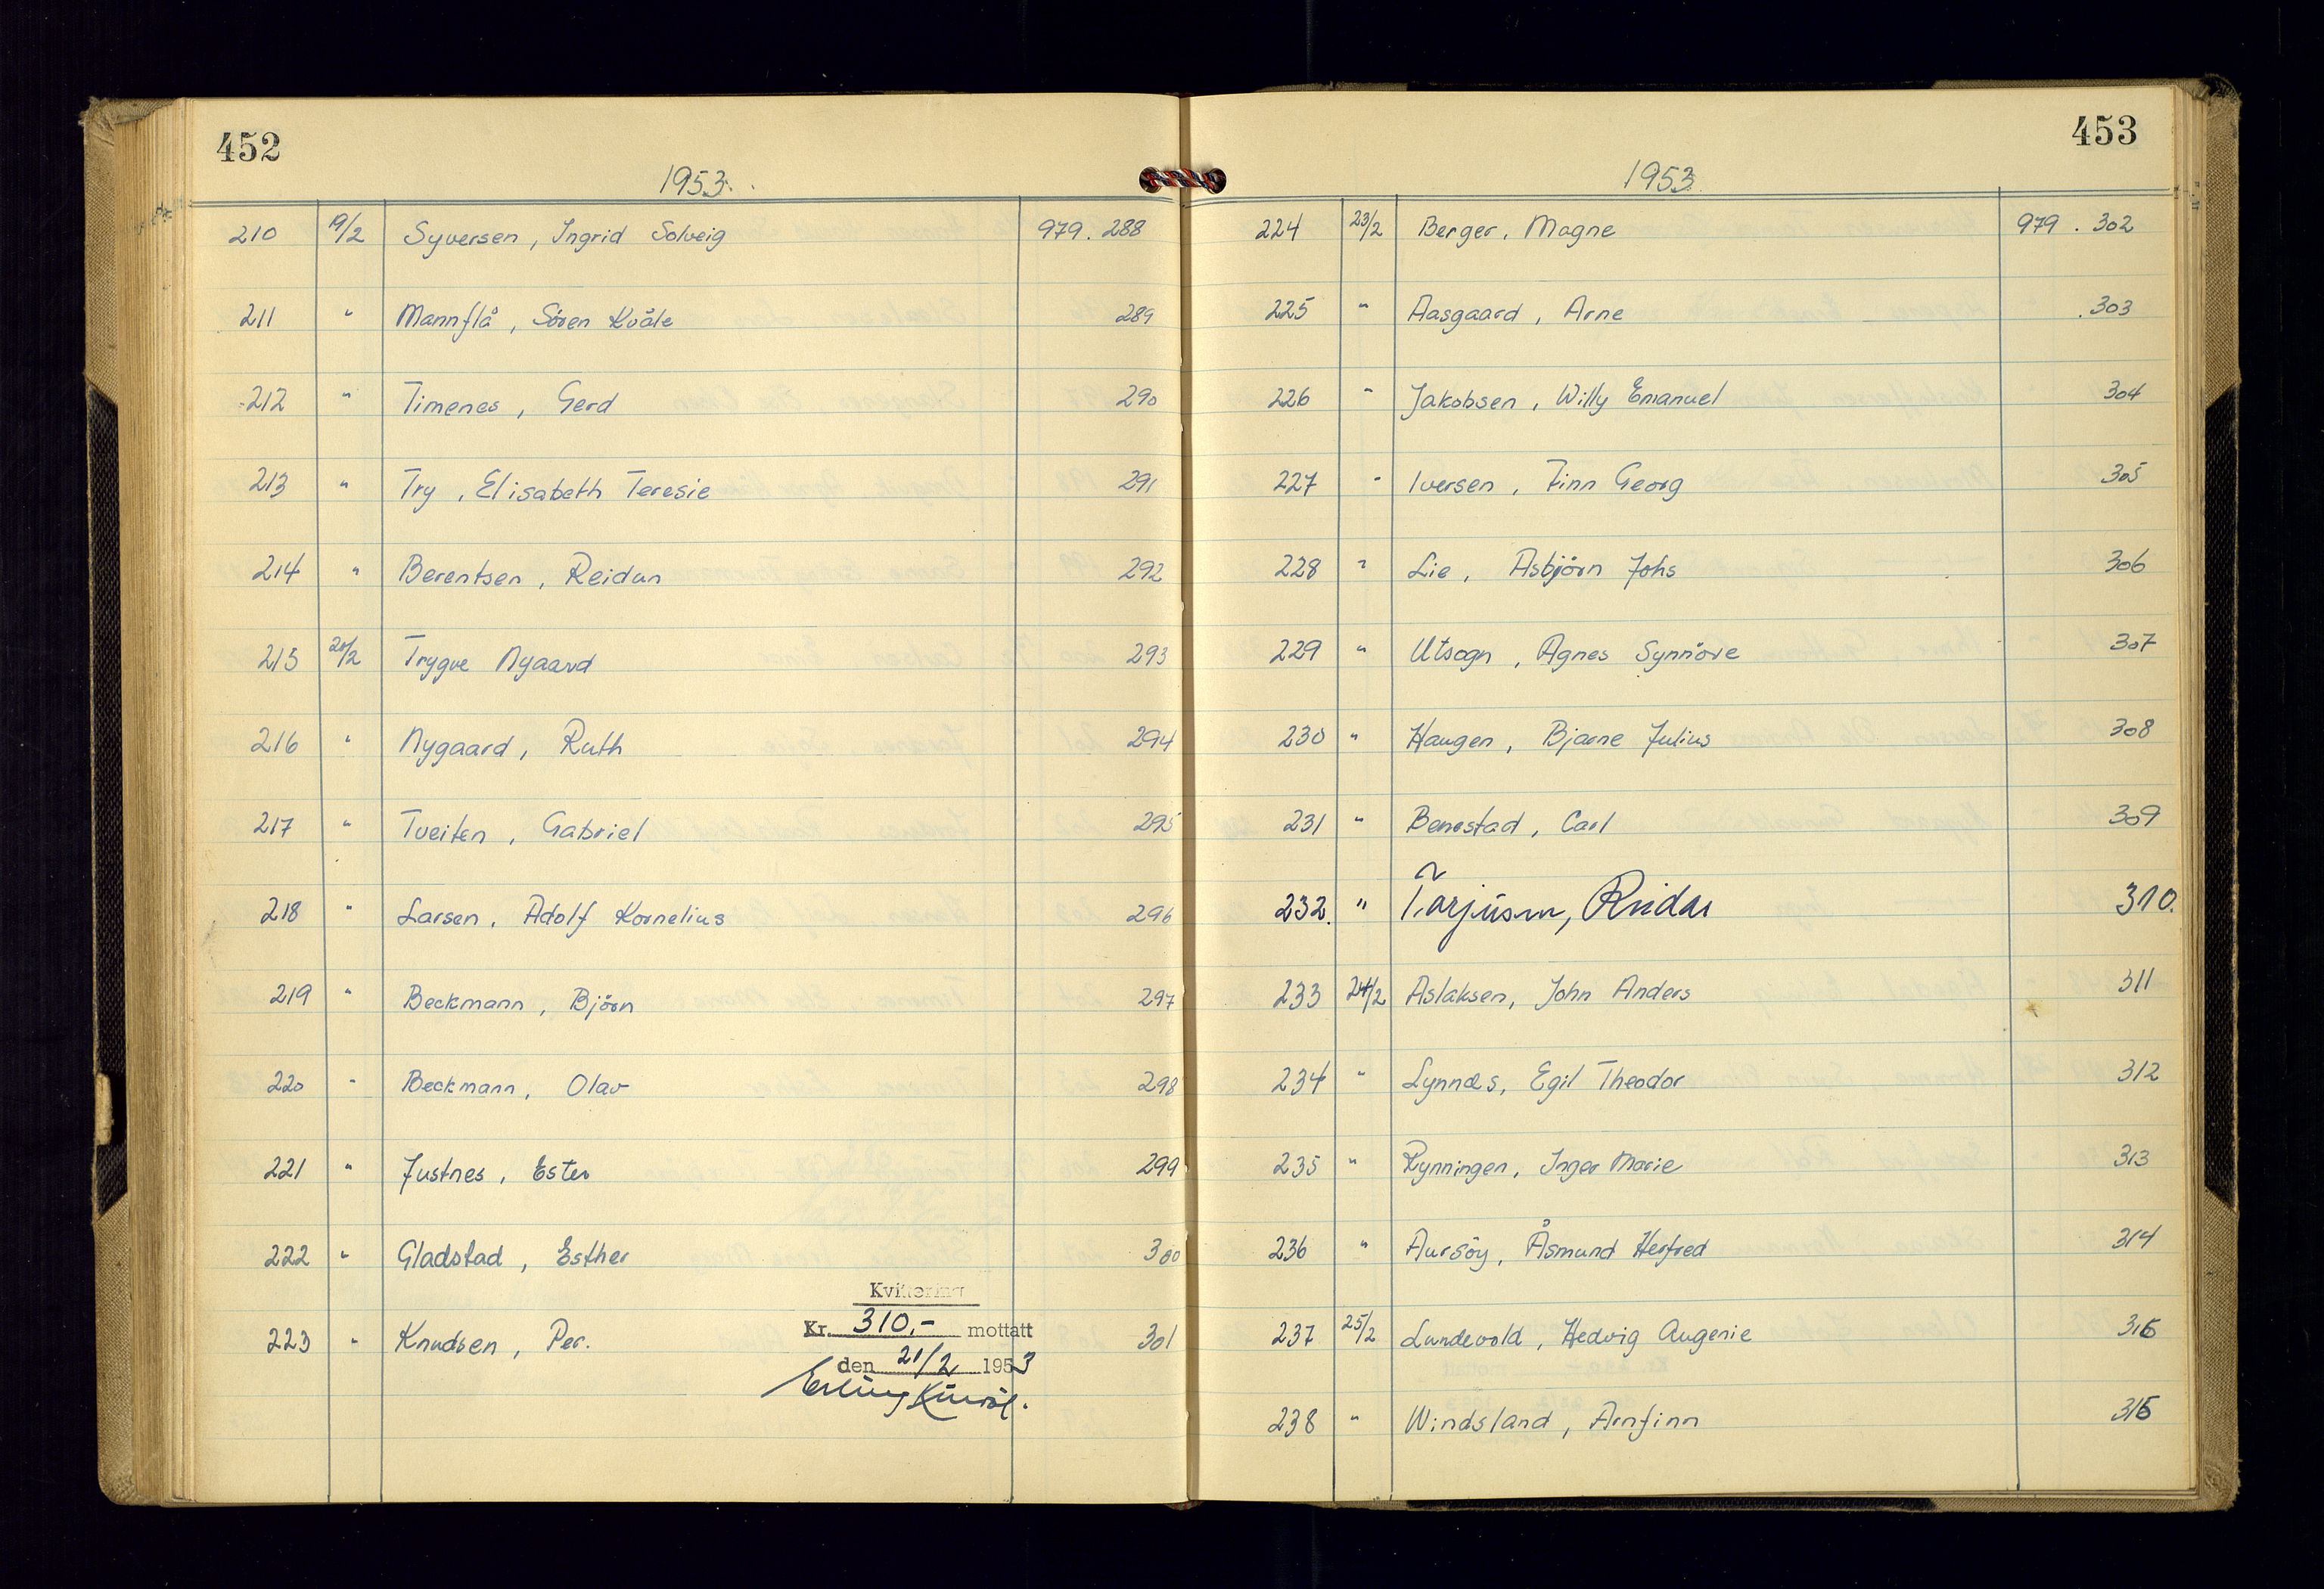 452
1953.
210 19/2 Syversen, Ingrid Solveig 979.288
211 " Mannflå, Sören Kvåle 289
212 " Timenes, Gerd 290
213 " Try, Elisabeth Teresie 291
214 " Berentsen, Reidun 292
215 20/2 Trygve Nygaard 293
216 " Nygaard, Ruth 294
217 " Tveiten, Gabriel 295
218 " Larsen, Adolf Kornelius 296
219 " Beckmann, Björn 297
220 " Beckmann, Olav 298
221 " Justnes, Ester 299
222 " Gladstad, Esther 300
223 " Knudsen, Per. 301
Kvittering
Kr. 310,- mottatt
den 21/2 1953
Erling
453
1953.
224 23/2 Berger, Magne 979.302
225 " Aasgaard, Arne .303
226 " Jakobsen, Willy Emanuel 304
227 " Iversen, Finn Georg 305
228 " Lie, Asbjörn Johs 306
229 " Utsogn, Agnes Synnöve 307
230 " Haugen, Bjarne Julius 308
231 " Benestad, Carl 309
232. " Tarjusen, Reidar 310.
233 24/2 Aslaksen, John Anders 311
234 " Lynnæs, Egil Theodor 312
235 " Rynningen, Inger Marie 313
236 " Aursöy, Åsmund Herfred 314
237 25/2 Lundevold, Hedvig Augenie 315
238 " Windsland, Arnfinn 316